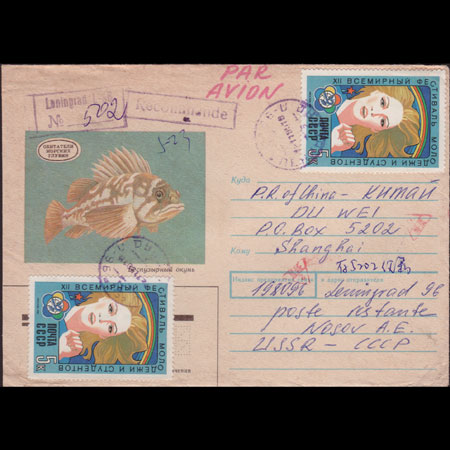 PAR
AVION
Leningrad
№ 5202
Recommandé
5-24
ОБИТАТЕЛИ
МОРСКИХ
ГЛУБИН
окунь
XII ВСЕМИРНЫЙ ФЕСТИВАЛЬ МОЛОДЕЖИ И СТУДЕНТОВ
ПОЧТА
СССР
5к
Куда
P.R. of China - КИТАЙ
DU WEI
P.O. BOX 5202
Кому
Shanghai
Индекс предприятия связи и адрес отправителя
198096 Leningrad 96
poste restante
Nosov A.E.
USSR - СССР
XII ВСЕМИРНЫЙ ФЕСТИВАЛЬ МОЛОДЕЖИ И СТУДЕНТОВ
ПОЧТА
СССР
5к